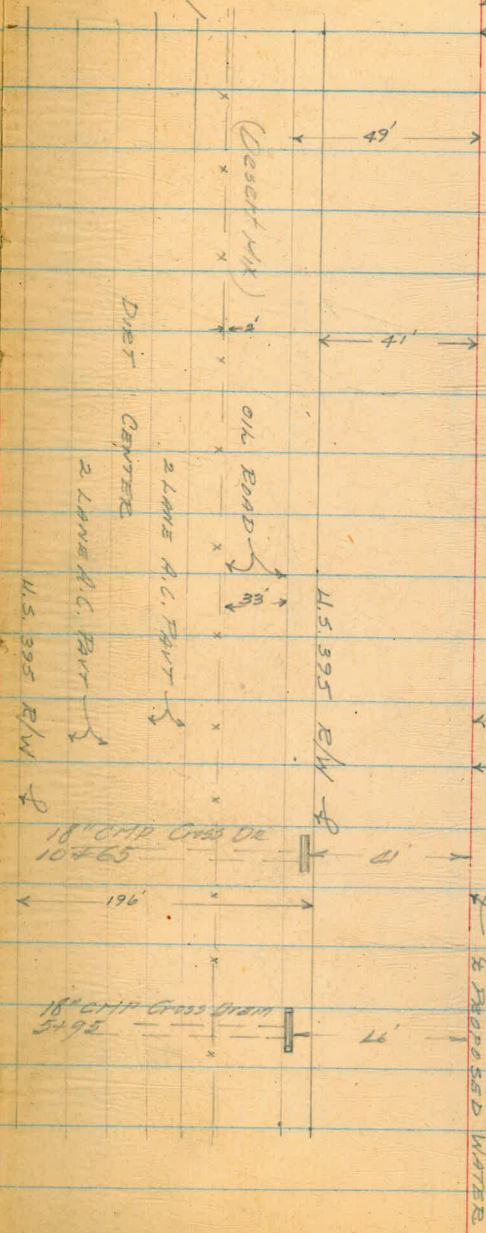 49'
(Desert Mix)
2'
41'
DIRT CENTER
OIL ROAD
2 LANE A.C. PAVT
2 LANE A.C. PAVT
33'
U.S. 395 R/W ℄
U.S. 395 R/W ℄
18" CMP Cross Dr
10+65
41'
196'
18" CMP Cross Drain
5+95
46'
℄ PROPOSED WATER